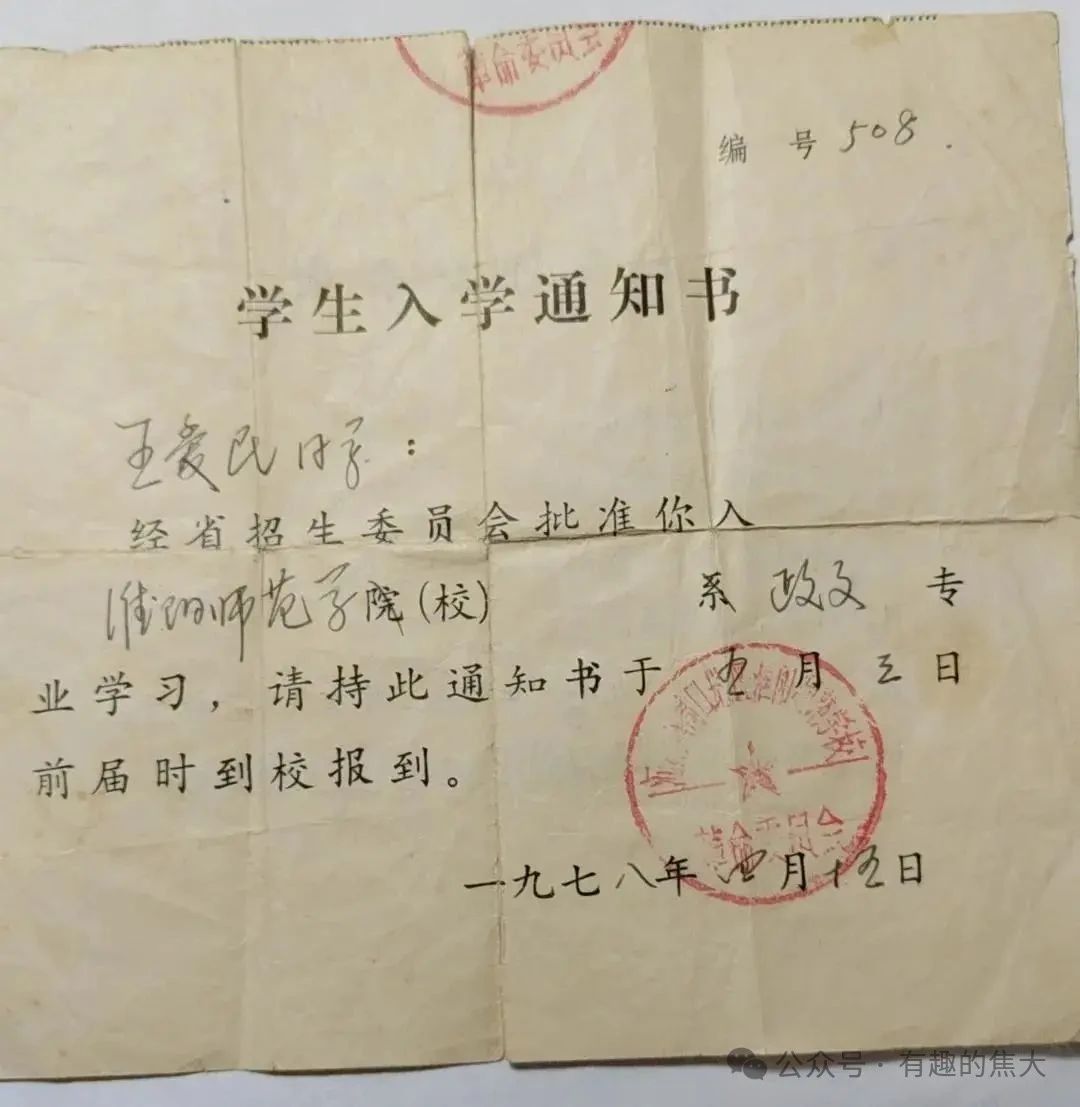 革命委员会
编 号 508
学生入学通知书
王爱民同学：
经省招生委员会批准你入
淮阴师范学院(校) 系 政文 专
业学习，请持此通知书于 五月 三日
前届时到校报到。
革命委员会
一九七八年 四月 十五日
公众号 · 有趣的焦大